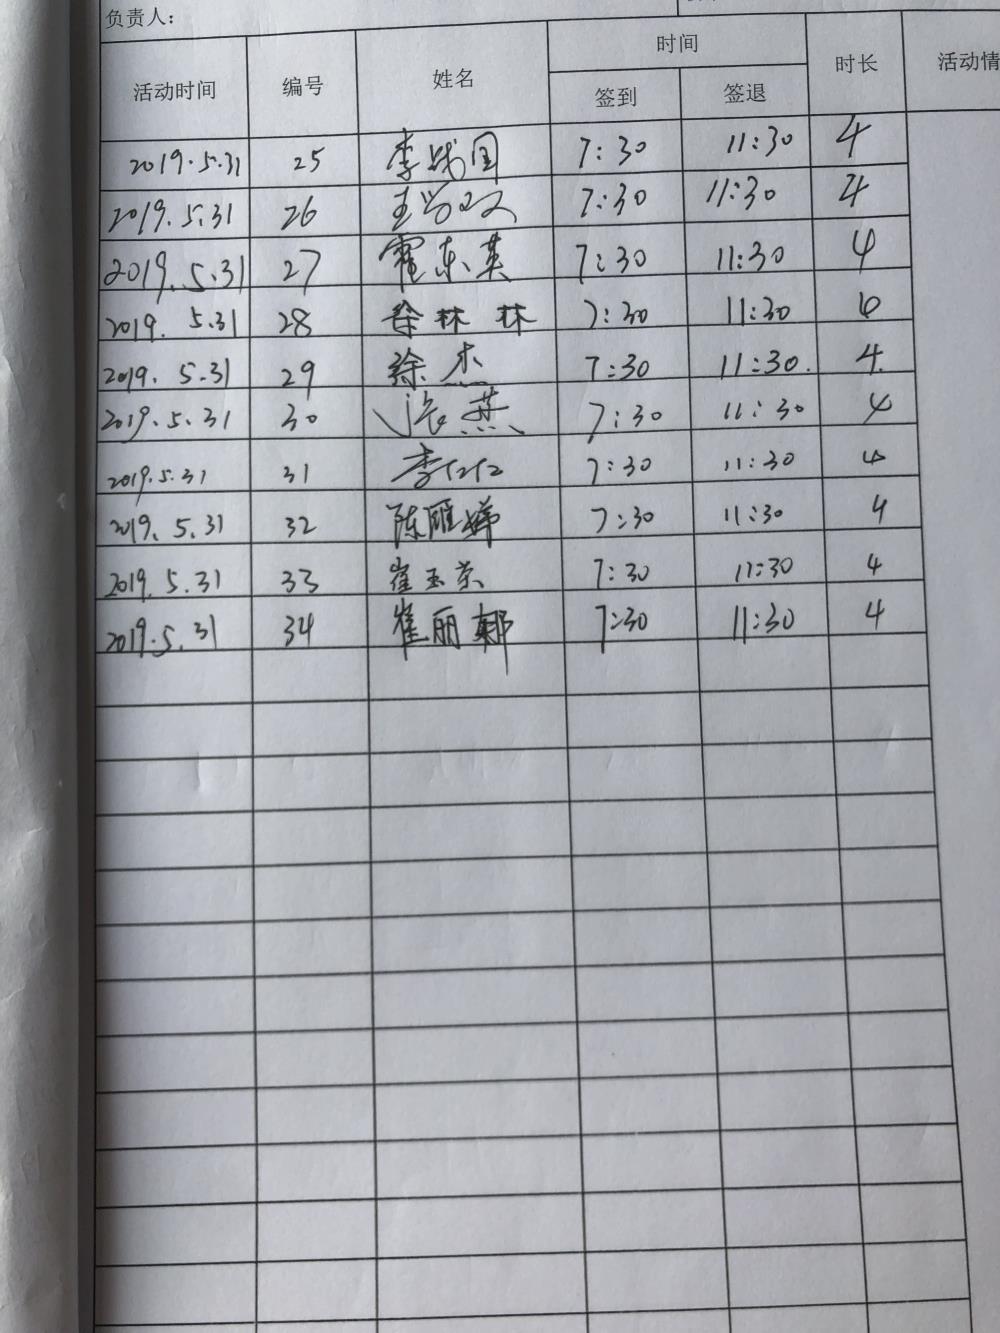 负责人：
活动时间 编号 姓名 时间 时长 活动情
签到 签退
2019.5.31 25 李战国 7:30 11:30 4
2019.5.31 26 7:30 11:30 4
2019.5.31 27 霍东英 7:30 11:30 4
2019.5.31 28 徐林林 7:30 11:30 4
2019.5.31 29 徐杰 7:30 11:30. 4.
2019.5.31 30 张燕 7:30 11:30 4
2019.5.31 31 李仁仁 7:30 11:30 4
2019.5.31 32 陈雁娣 7:30 11:30 4
2019.5.31 33 崔玉京 7:30 11:30 4
2019.5.31 34 崔丽娜 7:30 11:30 4